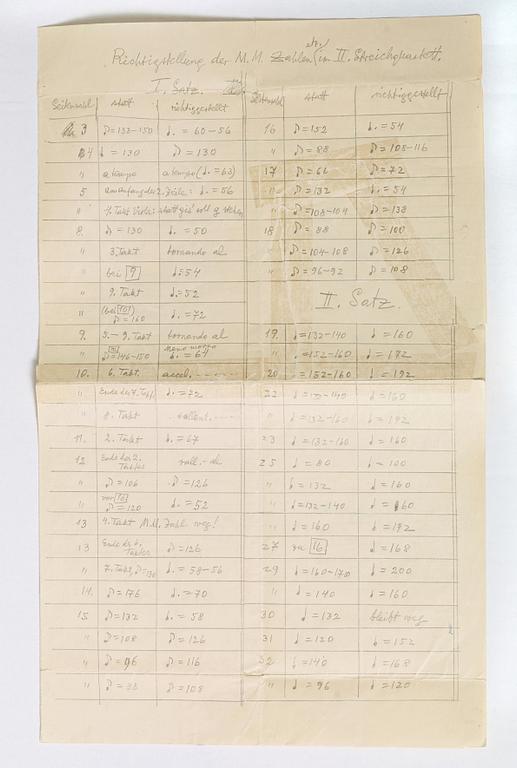 Richtigstellung der M. M. Zahlen etc. im II. Streichquartett.
I. Satz.
Seitenzahl statt richtiggestellt
3 ♪=132-150 ♩. = 60-56
4 ♩ = 130 ♪ = 130
" a tempo a tempo (♩. = 63)
5 am Anfang der 2. Zeile: ♩. = 56
" 4. Takt Viola: statt gis' soll g stehen
8. ♪ = 130 ♩. = 50
" 3. Takt tornando al
" bei 9 ♩.=54
" 9. Takt ♩.=52
" (bei 10) ♪=160 ♩.=72
9. 5.-9. Takt tornando al
" ♪=146-150 meno mosso ♩.=64
10. 6. Takt accel. - - - -
" Ende des 7. Takt. ♩.=72
" 8. Takt rallent. - - -
11. 2. Takt ♩.=67
12 Ende des 2. Taktes rall. - al
" ♪=106 ♪=126
" vor 16 ♪=120 ♩.=52
13 4. Takt M.M. Zahl weg!
13 Ende des 6. Taktes ♪=126
" 7. Takt, ♪=130 ♩.=58-56
14. ♪=176 ♩.=70
15. ♪=132 ♩.=58
" ♪=108 ♪=126
" ♪=96 ♪=116
" ♪=88 ♪=108
Seitenzahl statt richtiggestellt
16 ♪=152 ♩.=54
" ♪=88 ♪=108-116
17 ♪=66 ♪=72
" ♪=132 ♩.=54
" ♪=108-104 ♪=138
18 ♪=88 ♪=100
" ♪=104-108 ♪=126
" ♪=96-92 ♪=108
II. Satz.
19. ♩=132-140 ♩=160
" ♩=152-160 ♩=192
20 ♩=152-160 ♩=192
22 ♩=132-140 ♩=160
" ♩=132-160 ♩=192
23 ♩=132-160 ♩=160
25 ♩=80 ♩=100
" ♩=132 ♩=160
" ♩=132-140 ♩=160
" ♩=160 ♩=192
27 zu 16 ♩=168
29 ♩=160-170 ♩=200
" ♩=140 ♩=160
30 ♩=132 bleibt weg
31 ♩=120 ♩=152
32 ♩=140 ♩=168
" ♩=96 ♩=120